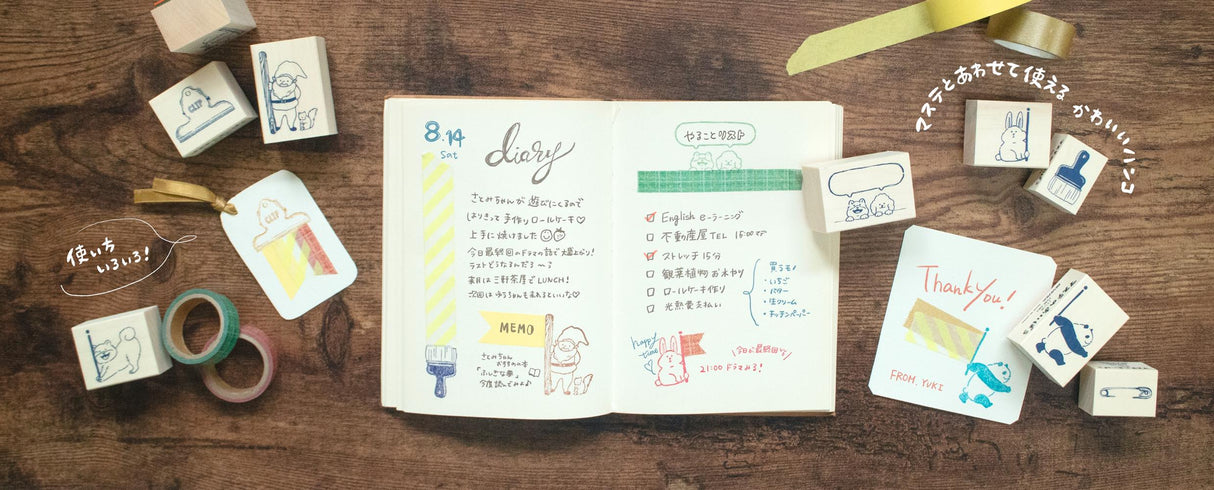 CLIP
使い方
いろいろ!
CLIP
8.14
Sat
diary
さとみちゃんが 遊びにくるので
はりきって 手作り ロールケーキ♡
上手に焼けました
今日最終回のドラマの話で大盛上がり!
ラストどうなるんだろ〜〜?
来月は三軒茶屋でLUNCH!
次回は ゆうちゃんも来れるといいな♡
MEMO
さとみちゃん
おすすめの本
「ふしぎな夢」
今度読んでみよ♪
やることリスト
English e-ラーニング
不動産屋 TEL 15:00まで
ストレッチ 15分
観葉植物 お水やり
ロールケーキ作り
光熱費支払い
買うモノ
・いちご
・バター
・生クリーム
・キッチンペーパー
happy
time
今日が最終回
21:00 ドラマみる!
マステとあわせて使える かわいいハンコ
Thank you!
FROM. YUKI